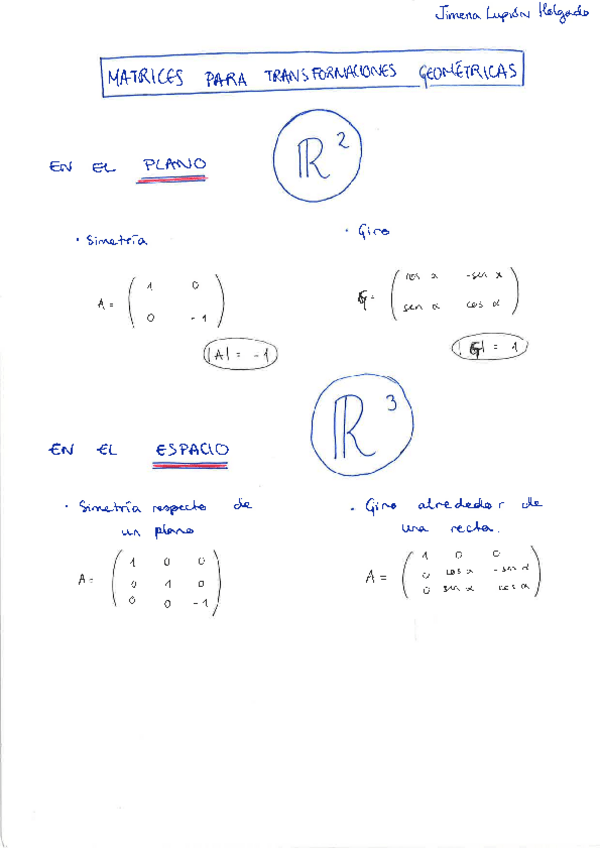 Jimena Lupión Holgado
MATRICES PARA TRANSFORMACIONES GEOMÉTRICAS
EN EL PLANO
ℝ²
· Simetría
A = ( 1 0
0 -1 )
|A| = -1
· Giro
G = ( cos α -sen α
sen α cos α )
|G| = 1
EN EL ESPACIO
ℝ³
· Simetría respecto de
un plano
A = ( 1 0 0
0 1 0
0 0 -1 )
· Giro alrededor de
una recta.
A = ( 1 0 0
0 cos α -sen α
0 sen α cos α )